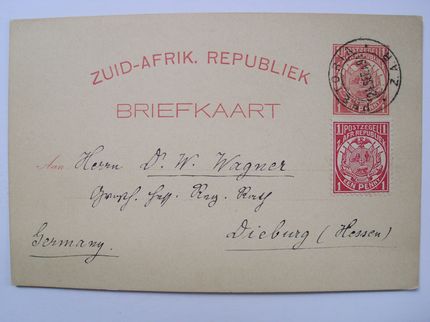 ZUID-AFRIK. REPUBLIEK
BRIEFKAART
Z.A.R.
PRETORIA
1 POSTZEGEL 1
AFR. REPUBLIEK
EEN PENNY 1
Aan Herrn Dr. W. Wagner
Großh. Hess. Reg. Rath
Dieburg (Hessen)
Germany.